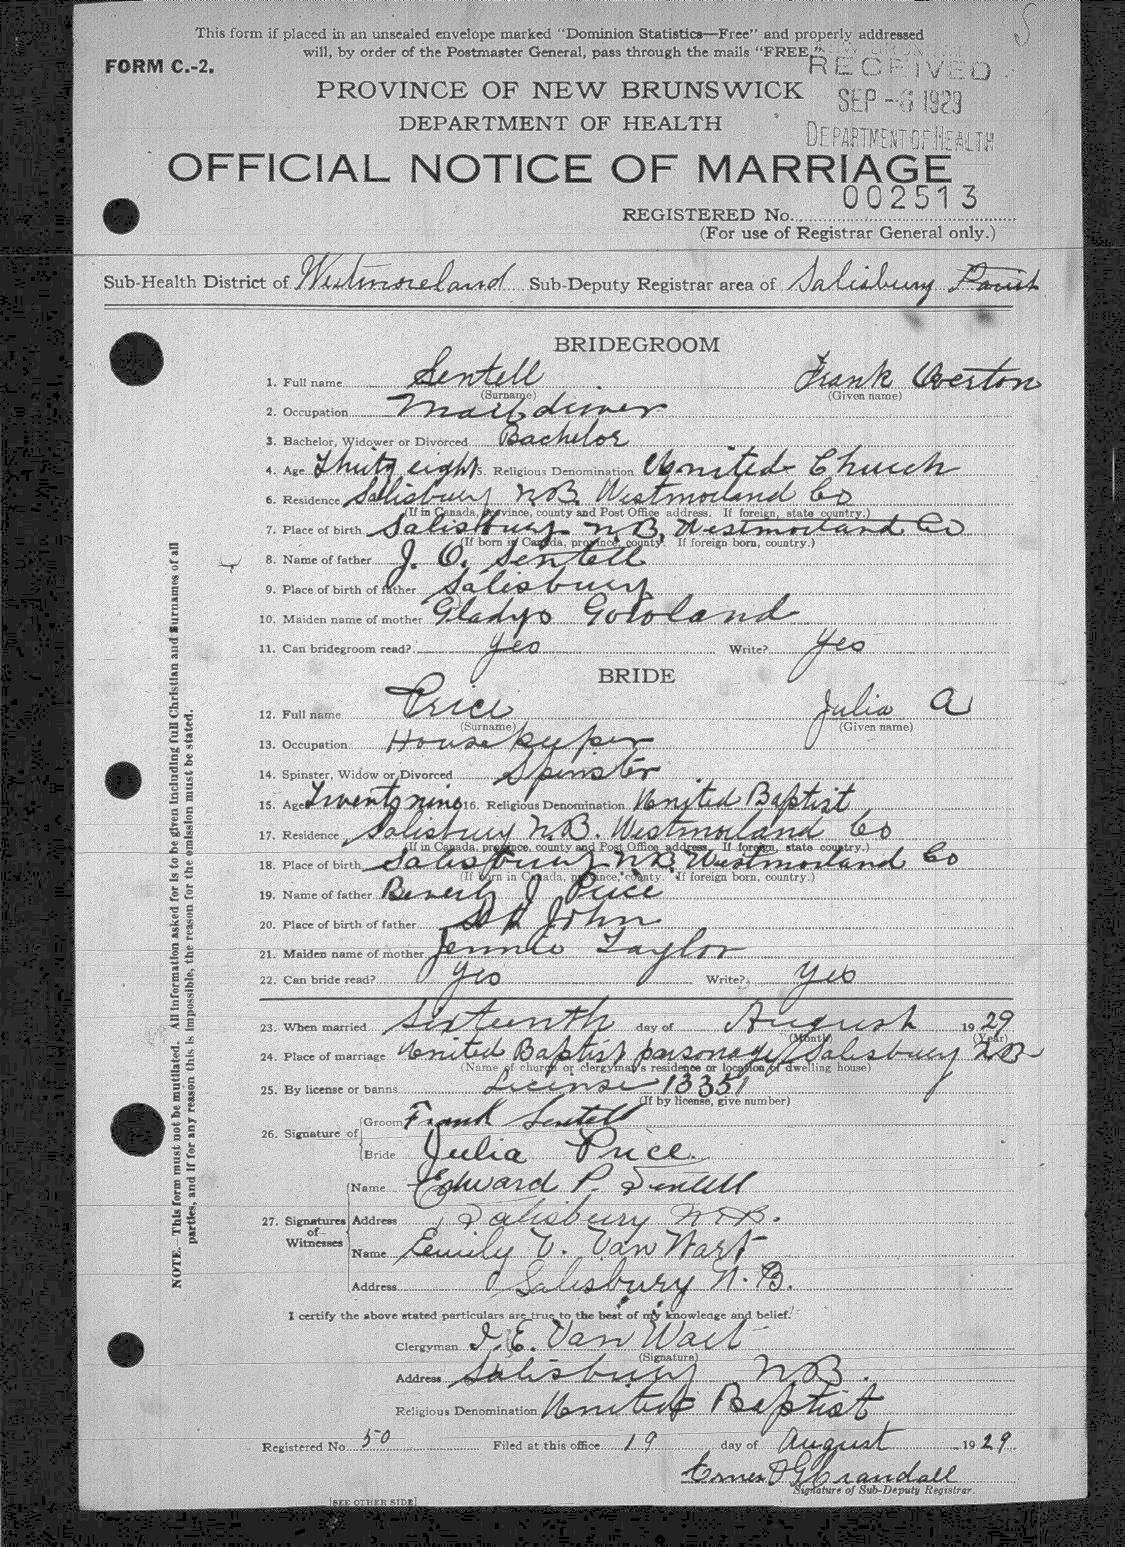 This form if placed in an unsealed envelope marked "Dominion Statistics—Free" and properly addressed
will, by order of the Postmaster General, pass through the mails "FREE."
FORM C.-2.
RECEIVED
SEP -6 1929
DEPARTMENT OF HEALTH
PROVINCE OF NEW BRUNSWICK
DEPARTMENT OF HEALTH
OFFICIAL NOTICE OF MARRIAGE
REGISTERED No. 002513
(For use of Registrar General only.)
Sub-Health District of Westmoreland Sub-Deputy Registrar area of Salisbury Parish
BRIDEGROOM
1. Full name Sentell Frank Overton
(Surname) (Given name)
2. Occupation Mail driver
3. Bachelor, Widower or Divorced Bachelor
4. Age Thirty eight 5. Religious Denomination United Church
6. Residence Salisbury N.B. Westmorland Co
(If in Canada, province, county and Post Office address. If foreign, state country.)
7. Place of birth Salisbury N.B. Westmorland Co
(If born in Canada, province, county. If foreign born, country.)
8. Name of father J. O. Sentell
9. Place of birth of father Salisbury
10. Maiden name of mother Gladys
11. Can bridegroom read? Yes Write? Yes
BRIDE
12. Full name Price Julia A
(Surname) (Given name)
13. Occupation Housekeeper
14. Spinster, Widow or Divorced Spinster
15. Age Twenty nine 16. Religious Denomination United Baptist
17. Residence Salisbury N.B. Westmorland Co
(If in Canada, province, county and Post Office address. If foreign, state country.)
18. Place of birth Salisbury N.B. Westmorland Co
(If born in Canada, province, county. If foreign born, country.)
19. Name of father Beverly J Price
20. Place of birth of father St John
21. Maiden name of mother Jennie Taylor
22. Can bride read? Yes Write? Yes
23. When married Sixteenth day of August 1929
(Month) (Year)
24. Place of marriage United Baptist parsonage Salisbury N.B.
(Name of church or clergyman's residence or location of dwelling house)
25. By license or banns License 13351
(If by license, give number)
26. Signature of Groom Frank Sentell
Bride Julia Price.
27. Signatures of Witnesses Name Edward P. Sentell
Address Salisbury N.B.
Name Emily V. Van Wart
Address Salisbury N.B.
I certify the above stated particulars are true to the best of my knowledge and belief.
Clergyman I. E. Van Wart
(Signature)
Address Salisbury N.B.
Religious Denomination United Baptist
Registered No. 50 Filed at this office 19 day of August 1929
Crandall
Signature of Sub-Deputy Registrar.
[SEE OTHER SIDE]
NOTE.—This form must not be mutilated. All information asked for is to be given including full Christian and Surnames of all
parties, and if for any reason this is impossible, the reason for the omission must be stated.